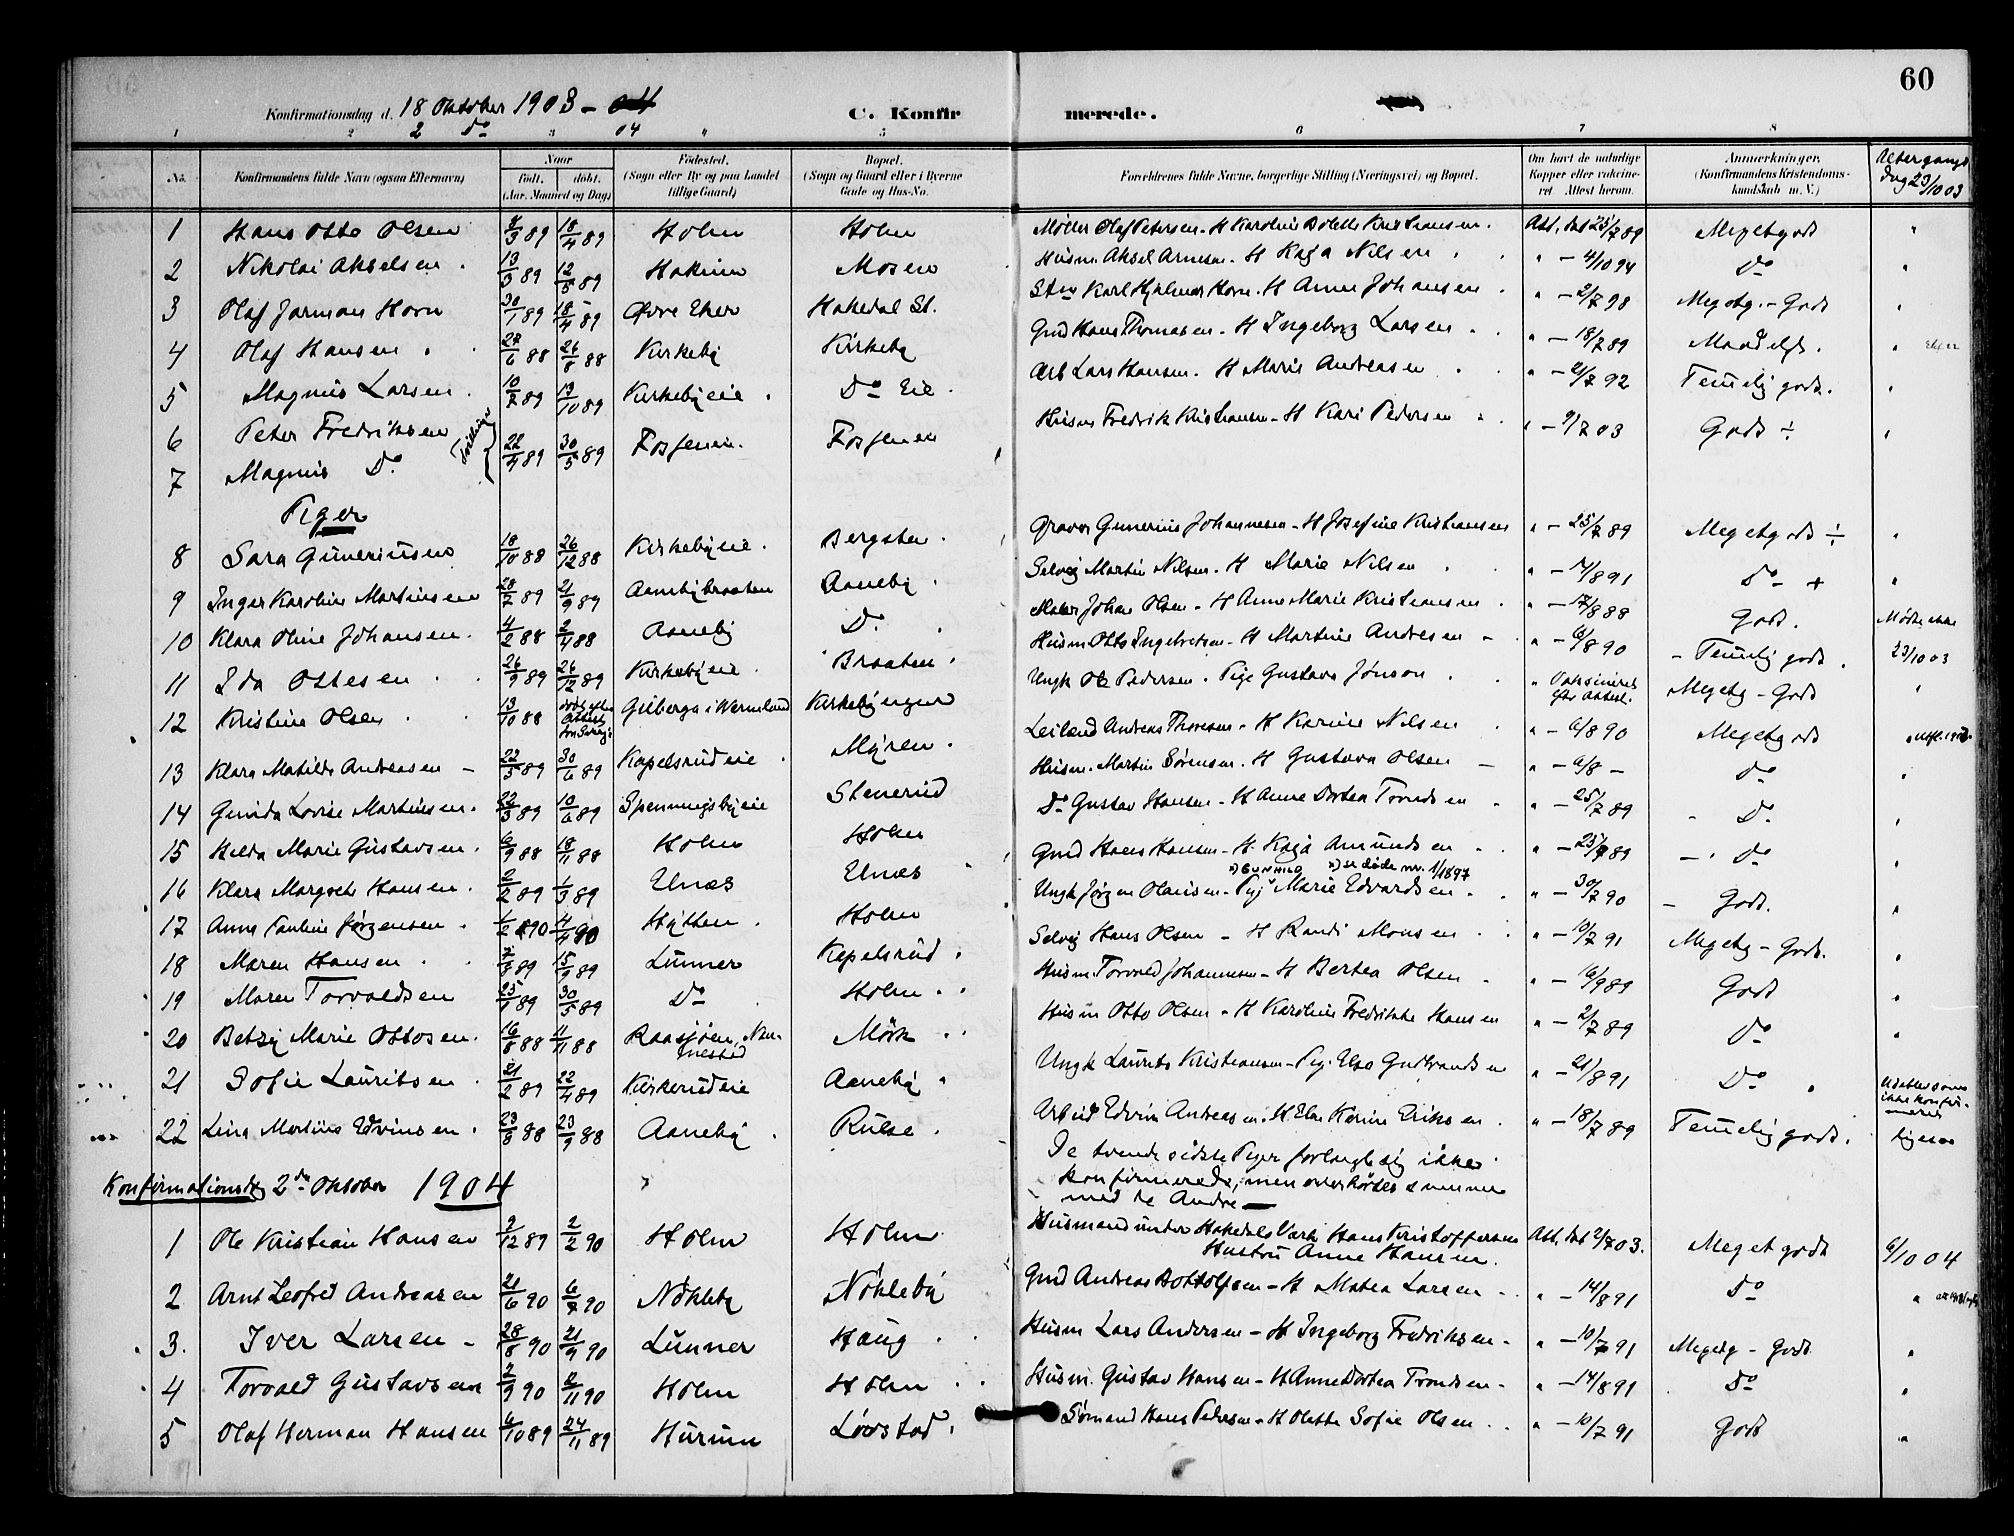 60
Konfirmationsdag d. 18 Oktober 1903 - 04 C. Konfirmerede.
2 Do 04
1 2 3 4 5 6 7 8
No. Konfirmandens fulde Navn (ogsaa Efternavn) Naar født. døbt. (Aar, Maaned og Dag) Fødested. (Sogn eller By og paa Landet tillige Gaard) Bopæl. (Sogn og Gaard eller i Byerne Gade og Hus-No. Forældrenes fulde Navne, borgerlige Stilling (Næringsvei) og Bopæl. Om havt de naturlige Kopper eller vaccineret Attest herom. Anmærkninger. (Konfirmandens Kristendomskundskab m. V.) Altergangsdag 23/10 03
1 Hans Otto Olsen 8/3 89 18/4 89 Holm Holm Møller Olaf Petersen - H Karoline Bolette Kristiansen. Att. dat 25/7 89 Meget godt "
2 Nikolai Akselsen 13/3 89 12/5 89 Hakim Mosen Husm Aksel Arnesen - H Kaja Nilsen " - 4/10 94 Do "
3 Olaf Jarman Horn 30/1 89 18/4 89 Øvre Eker Hakedal St. Karl Hjalmar Horn. H Anna Johansen " - 2/7 98 Megetg. - Godt
4 Olaf Hansen 27/6 88 26/8 88 Kirkeby Kirkeby Grd Hans Thomasen - H Ingeborg Larsen " - 18/7 89 "
5 Magnus Larsen 10/7 89 13/10 89 Kirkebyeie Do Eie Arb Lars Hansen. H Marie Andreasen " - 2/7 92 Temelig godt. "
6 Peter Fredriksen Tvillinger 22/4 89 30/5 89 Fosseneie. Fossenen Husm Fredrik Kristiansen - H Kari Pedersen " - 9/7 03 Godt ÷ "
7 Magnus Do
Piger
8 Sara Guneriusen 18/10 88 26/12 88 Kirkebyeie. Bergsten. Graver Gunerius Johannesen - H Josefine Kristiansen " - 25/7 89 Meget godt ÷ "
9 Inger Karoline Martinsen 28/7 89 21/9 89 Aanebybraaten Aaneby Selvej Martin Nilsen. H Marie Nilsen " - 4/8 91 Do + "
10 Klara Oline Johansen. 4/2 88 2/4 88 Aaneby Do Maler Johan Olsen - H Anne Marie Kristiansen " - 17/8 88 Godt. Mødte ikke
11 Ida Ottesen 26/9 89 26/12 89 Kirkebyeie Braaten. Husm Otto Ingebretsen - H Martine Andresen " - 6/8 90 - Temelig godt. 23/10 03
12 Kristine Olsen 13/10 88 døbt efter Attest fra Sverige Gilberga i Wermland Kirkebyengen Ungk Ole Pedersen. Pige Gustava Jonson " Vaksineret eftr Attest. Megetg - Godt "
13 Klara Matilde Andreasen - 22/5 89 30/6 89 Kapelsrudeie Myren. Leilænd Andreas Thoresen. H Karine Nilsen " - 6/8 90 Meget godt
14 Gunda Lovise Martinsen. 22/3 89 10/6 89 Spenningsbyeie Stenerud Husm. Martin Sørensen. H Gustava Olsen - " - 6/8 - Do "
15 Hilda Marie Gustavsen. 6/9 88 18/11 88 Holm Holm Do Gustav Hansen - H Anne Dortea Trondsen " - 25/7 89 - Do "
16 Klara Margrete Hansen. 2/2 89 1/3 89 Elnæs Elnæs Grd Hans Hansen - H. Kaja Amundsen " - 25/7 89 - " Do "
x) GUNHILD x) se døde nr. 1/1897
17 Anna Pauline Jørgensen. 1/2 90 4/4 90 Hytten. Holm Ungk Jørgen Olausen - Pigx Marie Edvardsen. " - 30/7 90 - Godt. "
18 Maren Hansen. 7/7 89 15/9 89 Lunner Kapelsrud. Selvej Hans Olsen - H Randi Monsen " - 10/7 91 Megetg - Godt. "
19 Maren Torvaldsen 25/1 89 30/5 89 Do Holm. Husm Torvald Johannesen - H Bertea Olsen. " - 16/9 89 Godt "
20 Betzy Marie Ottosen. 16/8 88 11/11 88 Raasjøen, Nannestad Mörk Husm Otto Olsen - H Karoline Fredrikke Hansen " - 2/7 89 Do "
21 Sofie Lauritsen 21/2 89 22/4 89 Kirkerudeie Aaneby " Ungk Laurits Kristiansen - Pig. Elsa Gudbrandsen " - 21/8 91 Do " Udebleven ikke konfirmeret
22 Lina Martine Edvinsen. 23/8 88 23/9 88 Aaneby. Rulse. Arbeid Edvin Andreasen. H Elen Karine Eriksen. " - 18/7 89 Temelig godt. ligesaa
De tvende sidste Piger forlangte sig ikke
konfirmerede; men overhørtes sammen
med de Andre -
Konfirmationsdg 2den Oktober 1904
1 Ole Kristian Hansen 2/12 89 2/2 90 Holm Holm Husmand under Hakedals Værk Hans Kristoffersen Hustru Anne Hansen. Att. dat 2/7 03. Meget godt 6/10 04
2 Arnt Leofred Andreasen 21/6 90 6/7 90 Nökleby Nökleby Grd Andreas Bottolfsen - H Matea Larsen " - 14/8 91 Do "
3. Iver Larsen - 28/8 90 21/9 90 Lunner Haug Husm Lars Andersen - H Ingeborg Fredriksen - " - 10/7 91 Megetg - Godt "
4 Torvald Gustavsen 2/9 90 2/11 90 Holm Holm Husm. Gustav Hansen - H Anne Dortea Trondsen - " - 14/8 91 Do "
5 Olaf Herman Hansen 6/10 89 24/11 89 Hurum Lövstad. Sømand Hans Pedersen - H Olette Sofie Olsen " - 10/7 91 Godt "